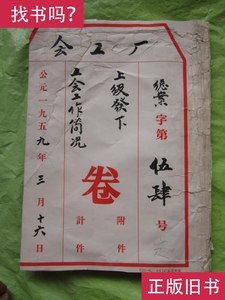 找书吗?
厂工会
總案字第伍肆号
上级發下
工会工作简况
卷
附件
計件
公元一九五九年三月十六日
正版旧书